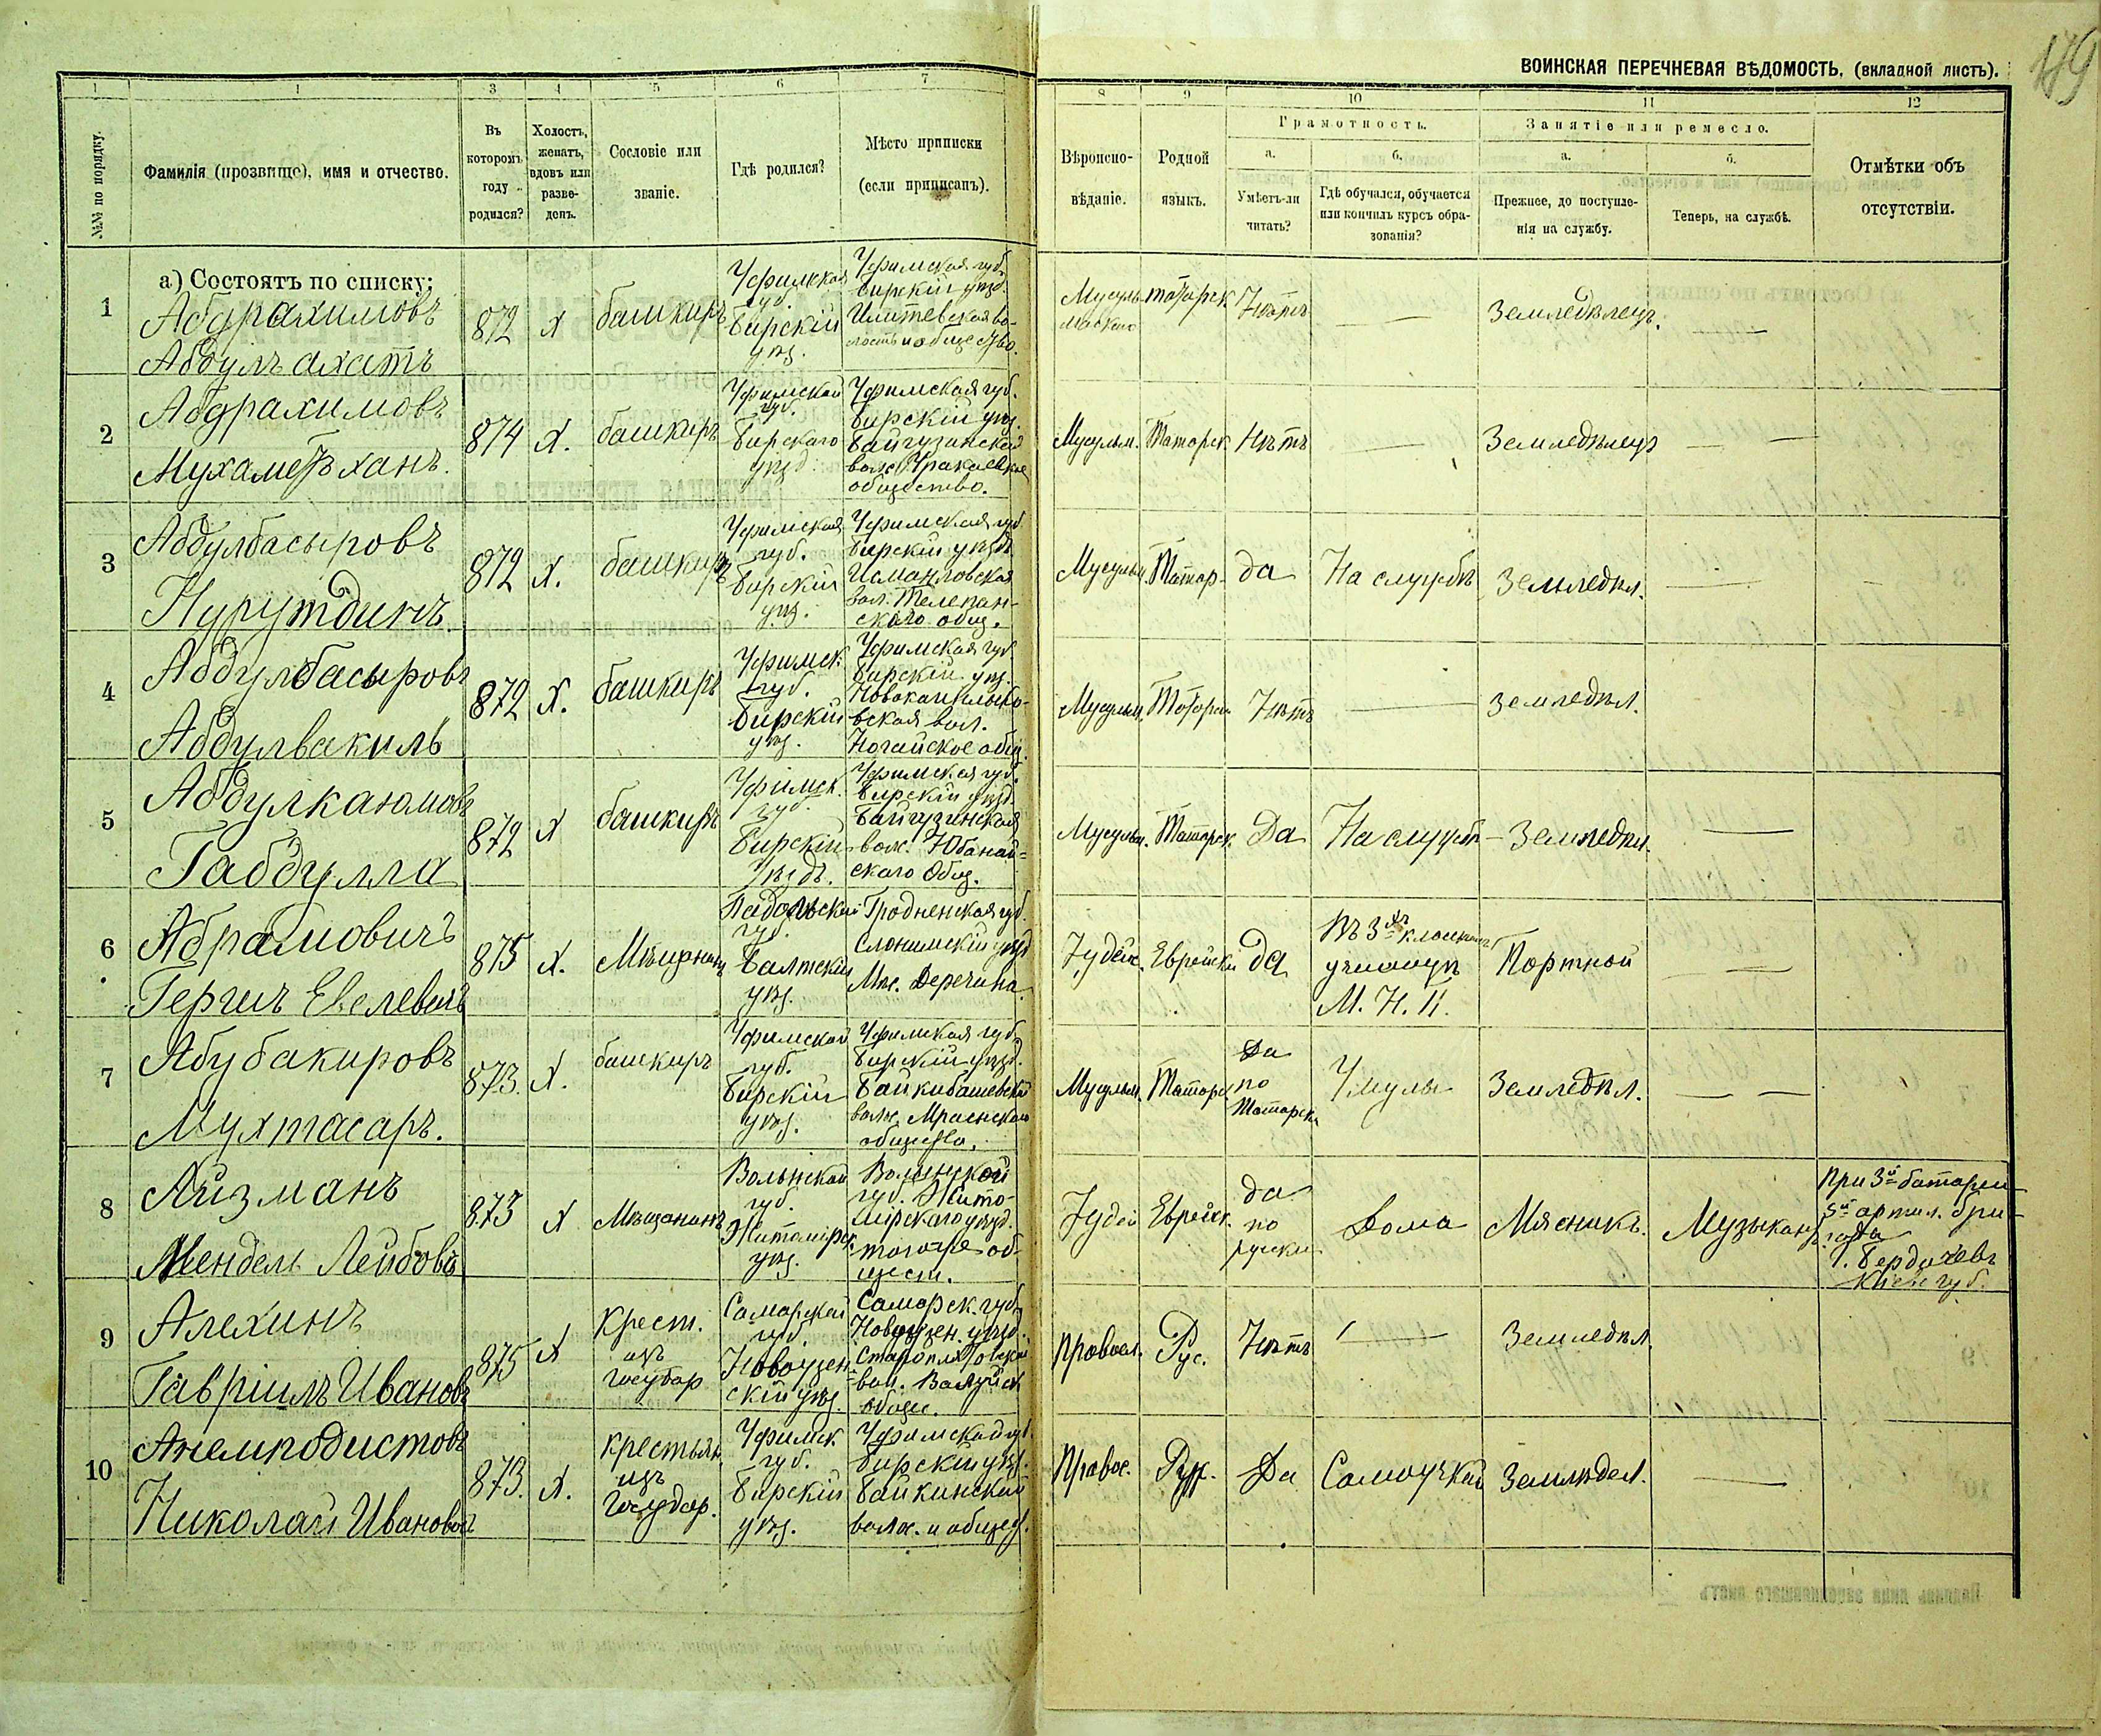 ВОИНСКАЯ ПЕРЕЧНЕВАЯ ВѢДОМОСТЬ, (вкладной листъ).
179
1 1 3 4 5 6 7 8 9 10 11 12
№№ по порядку.
Фамилія (прозвище), имя и отчество.
Въ которомъ году родился?
Холостъ, женатъ, вдовъ или разведенъ.
Сословіе или званіе.
Гдѣ родился?
Мѣсто приписки (если приписанъ).
Вѣроисповѣданіе.
Родной языкъ.
Грамотность.
а. Умѣетъ-ли читать?
б. Гдѣ обучался, обучается или кончилъ курсъ образованія?
Занятіе или ремесло.
а. Прежнее, до поступленія на службу.
б. Теперь, на службѣ.
Отмѣтки объ отсутствіи.
а) Состоятъ по списку:
1
Абдрахимовъ
Абдулъ ахатъ
872
х
башкиръ
Уфимская
губ.
Бирскій
уѣз.
Уфимская губ.
Бирскій уѣзд.
волость и общество.
Мусуль
манско
татарск
Нѣтъ
Земледѣлецъ.
2
Абдрахимовъ
Мухаметъ ханъ.
874
х.
башкиръ
Уфимской
губ.
Бирскаго
уѣзд.
Уфимская губ.
Бирскій уѣз.
Байгузинской
волос. Уракаевское
общество.
Мусульм.
Татарск
Нѣтъ
Земледѣлецъ
3
Абдулбасыровъ
Нурутдинъ.
872
х.
башкиръ
Уфимская
губ.
Бирскій
уѣз.
Уфимская губ.
Бирскій уѣзд.
Исмаиловская
вол. Телепан-
скаго общ.
Мусульм.
Татар.
да
На службѣ
Земледѣл.
4
Абдулбасыровъ
Абдулвакиль
872
х.
башкиръ
Уфимск.
губ.
Бирскій
уѣз.
Уфимская губ.
Бирскій уѣз.
вская вол.
Ногайское общ.
Мусульм.
Татарск
Нѣтъ
Земледѣл.
5
Абдулкаюмовъ
Габдулла
872
х
башкиръ
Уфимск.
губ.
Бирскій
уѣздъ.
Уфимская губ.
Бирскій уѣзд.
Байгузинская
волос. Юбанай-
скаго Общ.
Мусульм.
Татарск
Да
На службѣ
Земледѣл.
6
Абрамовичъ
Гергиъ Евелевичъ
875
х.
Мѣщанинъ
Падольской
губ.
Балтскій
уѣз.
Гродненская губ.
Слонимскій уѣзд
Мѣс. Деречина.
Іудейс.
Еврейски
да
Въ 3хъ классномъ
училищѣ
М. Н. П.
Портной
7
Абубакировъ
Мухтасаръ.
873.
х.
башкиръ
Уфимской
губ.
Бирскій
уѣз.
Уфимская губ.
Бирскій уѣзд.
Байкибашевской
волос. Мрясенскаго
общества.
Мусульм.
Татарс
Да
по
Татарски
У мулы
Земледѣл.
8
Айзманъ
Мендель Лейбовъ
873
х
Мѣщанинъ
Волынской
губ.
Житомірск.
уѣз.
Волынской
губ. Жито-
мірскаго уѣзд.
тогоже об-
щест.
Іудей
Еврейск.
да
по
русски
Дома
Мясникъ.
Музыкантъ
При 3й батареи
5й артил. бри-
гада
г. Бердичевъ
Кіев. губ.
9
Алехинъ
Гавріилъ Ивановъ
875
х
Крест.
изъ
государ
Самарской
губ.
Новоузен-
скій уѣз.
Самарск. губ.
Новоузен. уѣзд.
вол. Валуйск
общес.
Правосл.
Рус.
Нѣтъ
Земледѣл.
10
Анемподистовъ
Николай Ивановъ
873.
х.
Крестьян
изъ
Государ.
Уфимск
губ.
Бирскій
уѣз.
Уфимской губ.
Бирскій уѣз.
Байкинской
волос. и общест.
Правос.
Рус.
Да
Самоучкой
Земледѣл.